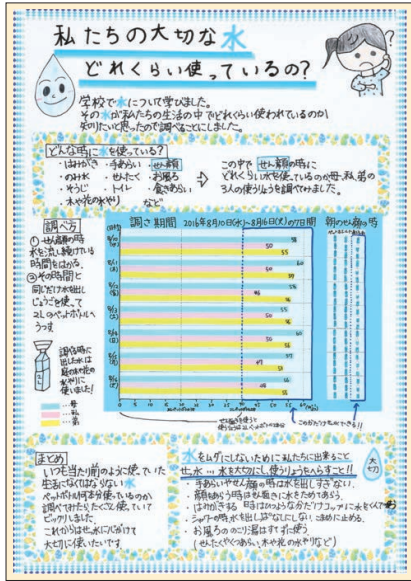 私たちの大切な水
どれくらい使っているの?
学校で水について学びました。
その水が私たちの生活の中でどれくらい使われているのか
知りたいと思ったので調べることにしました。
どんな時に水を使っている?
・はみがき ・手あらい ・せん顔
・のみ水 ・せんたく ・お風ろ
・そうじ ・トイレ ・食きあらい
・木や花の水やり など
この中で せん顔の時に
どれくらい水を使っているのか母、私、弟の
3人の使うりょうを調べてみました。
調べ方
① せん顔の時
水を流し続けている
時間をはかる。
② その時間と
同じだけ水を出し
じょうごを使って
2Lのペットボトルへ
うつす
調べる時に
出した水は
庭の木や花の
水やりに
使いました!
…母
…私
…弟
調き期間 2016年8月10日(水)~8月16日(火)の7日間
朝のせん顔の時
まとめ
いつも当たり前のように使っていた
生活になくてはならない水
ペットボトル何本分使っているのか
調べてみたらたくさん使っていて
ビックリしました。
これからはせつ水に心がけて
大切に使いたいです。
水をムダにしないために私たちに出来ること
せつ水…水を大切にし、使うりょうをへらすこと!!
大切
・手あらいやせん顔の時は水を出しすぎない。
・顔をあらう時はせん面きに水をためてあらう。
・はみがきする時はひつような分だけコップに水をくんで使う
・シャワーの時、水を出しぱなしにしない。こまめに止める。
・お風ろののこり湯はすてずに使う
(せんたくやくつあらい、木や花の水やりなど)